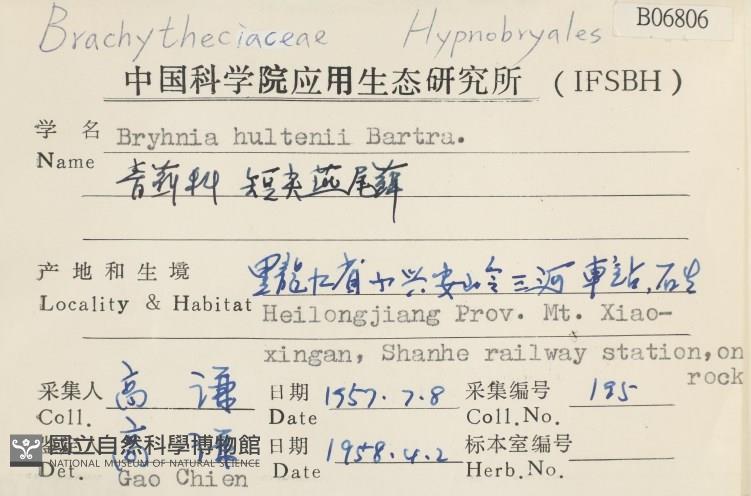 Brachytheciaceae Hypnobryales B06806
中国科学院应用生态研究所 (IFSBH)
学 名 Bryhnia hultenii Bartra.
Name
青藓科 短尖燕尾藓
产地和生境 黑龍江省小兴安岭三河車站,石生
Locality & Habitat Heilongjiang Prov. Mt. Xiao-
xingan, Shanhe railway station, on
rock
采集人 高 谦 日期 1957.7.8 采集编号 195
Coll. Date Coll.No.
高 谦 日期 1958.4.2 标本室编号
國立自然科學博物館
NATIONAL MUSEUM OF NATURAL SCIENCE
Det. Gao Chien Date Herb.No.